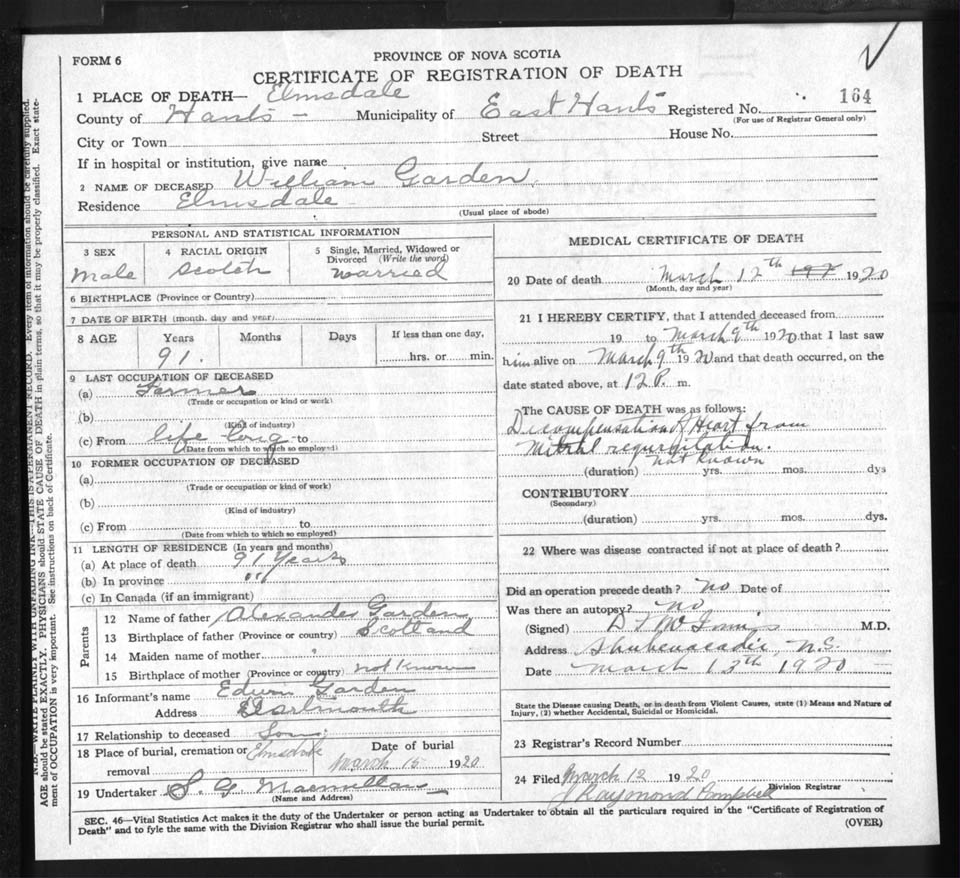 FORM 6
PROVINCE OF NOVA SCOTIA
CERTIFICATE OF REGISTRATION OF DEATH
1 PLACE OF DEATH— Elmsdale
County of Hants — Municipality of East Hants Registered No. 164
(For use of Registrar General only)
City or Town Street House No.
If in hospital or institution, give name
2 NAME OF DECEASED William Garden
Residence Elmsdale
(Usual place of abode)
PERSONAL AND STATISTICAL INFORMATION
3 SEX
Male
4 RACIAL ORIGIN
Scotch
5 Single, Married, Widowed or
Divorced (Write the word)
Married
6 BIRTHPLACE (Province or Country)
7 DATE OF BIRTH (month, day and year)
8 AGE Years Months Days If less than one day,
91. hrs. or min.
9 LAST OCCUPATION OF DECEASED
(a) Farmer
(Trade or occupation or kind or work)
(b)
(Kind of industry)
(c) From life long to
(Date from which to which so employed)
10 FORMER OCCUPATION OF DECEASED
(a)
(Trade or occupation or kind of work)
(b)
(Kind of industry)
(c) From to
(Date from which to which so employed)
11 LENGTH OF RESIDENCE (In years and months)
(a) At place of death 91 years
(b) In province " "
(c) In Canada (if an immigrant)
Parents
12 Name of father Alexander Garden
13 Birthplace of father (Province or country) Scotland
14 Maiden name of mother
15 Birthplace of mother (Province or country) not known
16 Informant's name Edwin Garden
Address Dartmouth
17 Relationship to deceased Son
18 Place of burial, cremation or Elmsdale Date of burial
removal March 15 1920
19 Undertaker S. G. Macmillan
(Name and Address)
MEDICAL CERTIFICATE OF DEATH
20 Date of death March 12th 192 1920
(Month, day and year)
21 I HEREBY CERTIFY, that I attended deceased from
19 to March 9th 1920 that I last saw
him alive on March 9th 1920 and that death occurred, on the
date stated above, at 12 P. m.
The CAUSE OF DEATH was as follows:
Decompensation of Heart from
Mitral regurgitation.
(duration) not known yrs. mos. dys
CONTRIBUTORY
(Secondary)
(duration) yrs. mos. dys.
22 Where was disease contracted if not at place of death?
Did an operation precede death? no Date of
Was there an autopsy? no
(Signed) M.D.
Address Shubenacadie, N.S.
Date March 13th 1920
State the Disease causing Death, or in death from Violent Causes, state (1) Means and Nature of
Injury, (2) whether Accidental, Suicidal or Homicidal.
23 Registrar's Record Number
24 Filed March 12 1920
J Raymond Campbell Division Registrar
SEC. 46—Vital Statistics Act makes it the duty of the Undertaker or person acting as Undertaker to obtain all the particulars required in the "Certificate of Registration of
Death" and to fyle the same with the Division Registrar who shall issue the burial permit. (OVER)
N.B.—WRITE PLAINLY WITH UNFADING INK—THIS IS A PERMANENT RECORD. Every item of information should be carefully supplied.
AGE should be stated EXACTLY. PHYSICIANS should STATE CAUSE OF DEATH in plain terms, so that it may be properly classified. Exact state-
ment of OCCUPATION is very important. See instructions on back of Certificate.